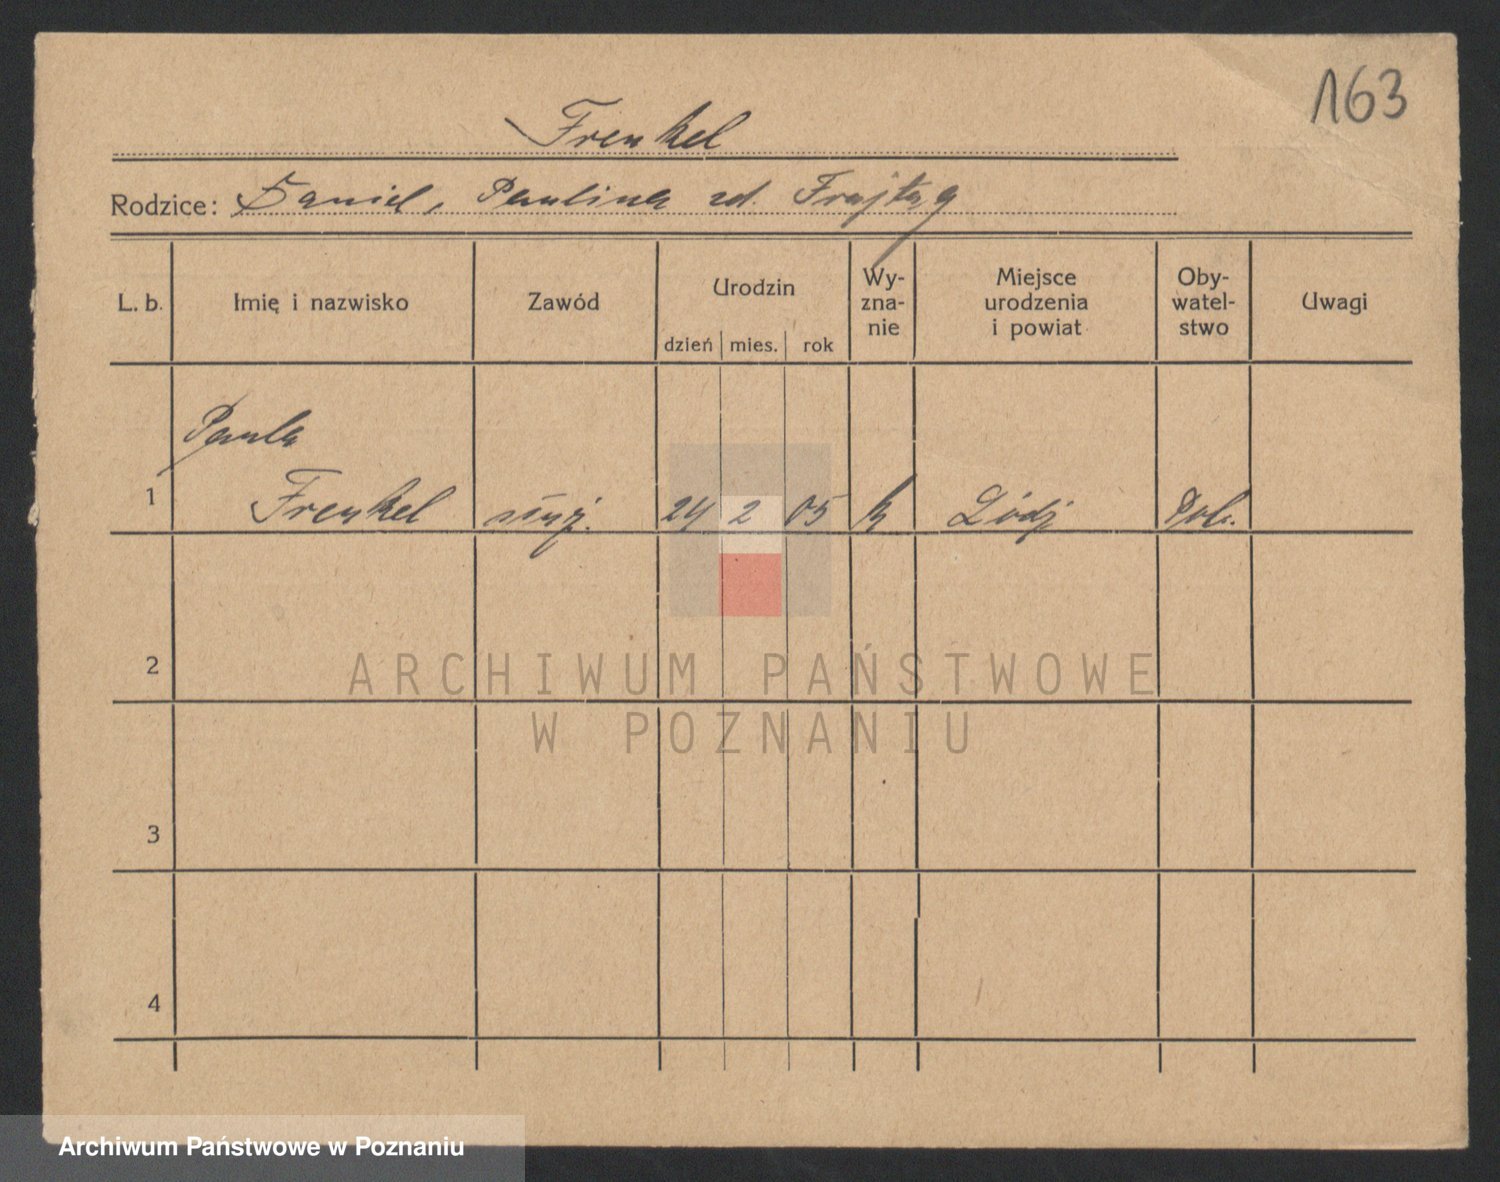 163
Frenkel
Rodzice: Daniel, Paulina zd. Frajtag
L. b. Imię i nazwisko Zawód Urodzin dzień mies. rok Wy-zna-nie Miejsce urodzenia i powiat Oby-watel-stwo Uwagi
Paula
1 Frenkel służ. 24 2 05 Łódź Pol.
2
ARCHIWUM PAŃSTWOWE
W POZNANIU
3
4
Archiwum Państwowe w Poznaniu